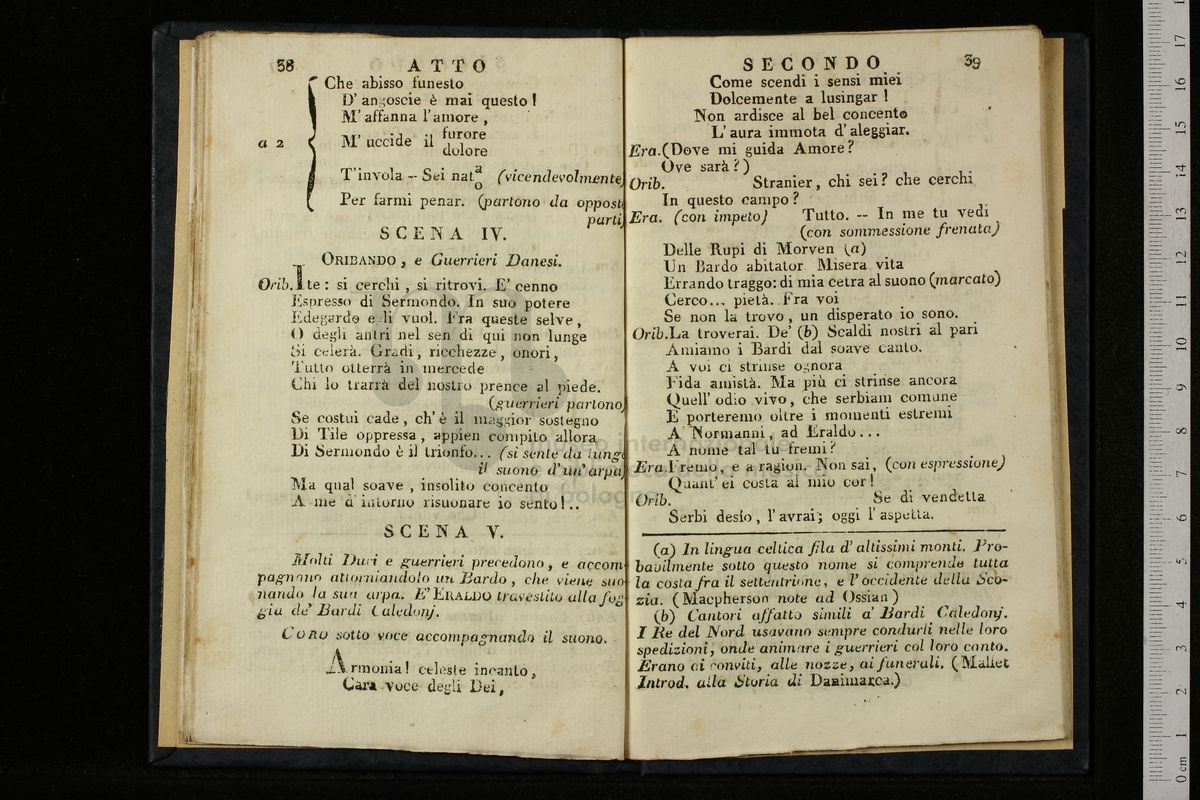 38 ATTO
Che abisso funesto
D' angoscie è mai questo!
M' affanna l'amore,
a 2 M' uccide il furore
dolore
T'invola -- Sei nata
o (vicendevolmente
Per farmi penar. (partono da opposte
parti)
SCENA IV.
ORIBANDO, e Guerrieri Danesi.
Orib. Ite: si cerchi, si ritrovi. E' cenno
Espresso di Sermondo. In suo potere
Edegardo egli vuol. Fra queste selve,
O degli antri nel sen di qui non lunge
Si celerà. Gradi, ricchezze, onori,
Tutto otterrà in mercede
Chi lo trarrà del nostro prence al piede.
(guerrieri partono)
Se costui cade, ch'è il maggior sostegno
Di Tile oppressa, appien compito allora
Di Sermondo è il trionfo... (si sente da lungi
il suono d'un'arpa)
Ma qual soave, insolito concento
A me d'intorno risuonare io sento!..
SCENA V.
Molti Duci e guerrieri precedono, e accom
pagnano attorniandolo un Bardo, che viene suo
nando la sua arpa. E' ERALDO travestito alla fog
gia de' Bardi Caledonj.
CORO sotto voce accompagnando il suono.
Armonia! celeste incanto,
Cara voce degli Dei,
SECONDO 39
Come scendi i sensi miei
Dolcemente a lusingar!
Non ardisce al bel concento
L'aura immota d'aleggiar.
Era. (Dove mi guida Amore?
Ove sarà?)
Orib. Stranier, chi sei? che cerchi
In questo campo?
Era. (con impeto) Tutto. -- In me tu vedi
(con sommessione frenata)
Delle Rupi di Morven (a)
Un Bardo abitator Misera vita
Errando traggo: di mia cetra al suono (marcato)
Cerco... pietà. Fra voi
Se non la trovo, un disperato io sono.
Orib. La troverai. De' (b) Scaldi nostri al pari
Amiamo i Bardi dal soave canto.
A voi ci strinse ognora
Fida amistà. Ma più ci strinse ancora
Quell' odio vivo, che serbiam comune
E porteremo oltre i momenti estremi
A Normanni, ad Eraldo...
A nome tal tu fremi?
Era. Fremo, e a ragion. Non sai, (con espressione)
Quant' ei costa al mio cor!
Orib. Se di vendetta
Serbi desio, l'avrai; oggi l'aspetta.
(a) In lingua celtica fila d' altissimi monti. Pro-
babilmente sotto questo nome si comprende tutta
la costa fra il settentrione, e l'occidente della Sco-
zia. (Macpherson note ad Ossian)
(b) Cantori affatto simili a' Bardi Caledonj.
I Re del Nord usavano sempre condurli nelle loro
spedizioni, onde animare i guerrieri col loro canto.
Erano ai conviti, alle nozze, ai funerali. (Mallet
Introd. alla Storia di Danimarca.)
0 cm 1 2 3 4 5 6 7 8 9 10 11 12 13 14 15 16 17